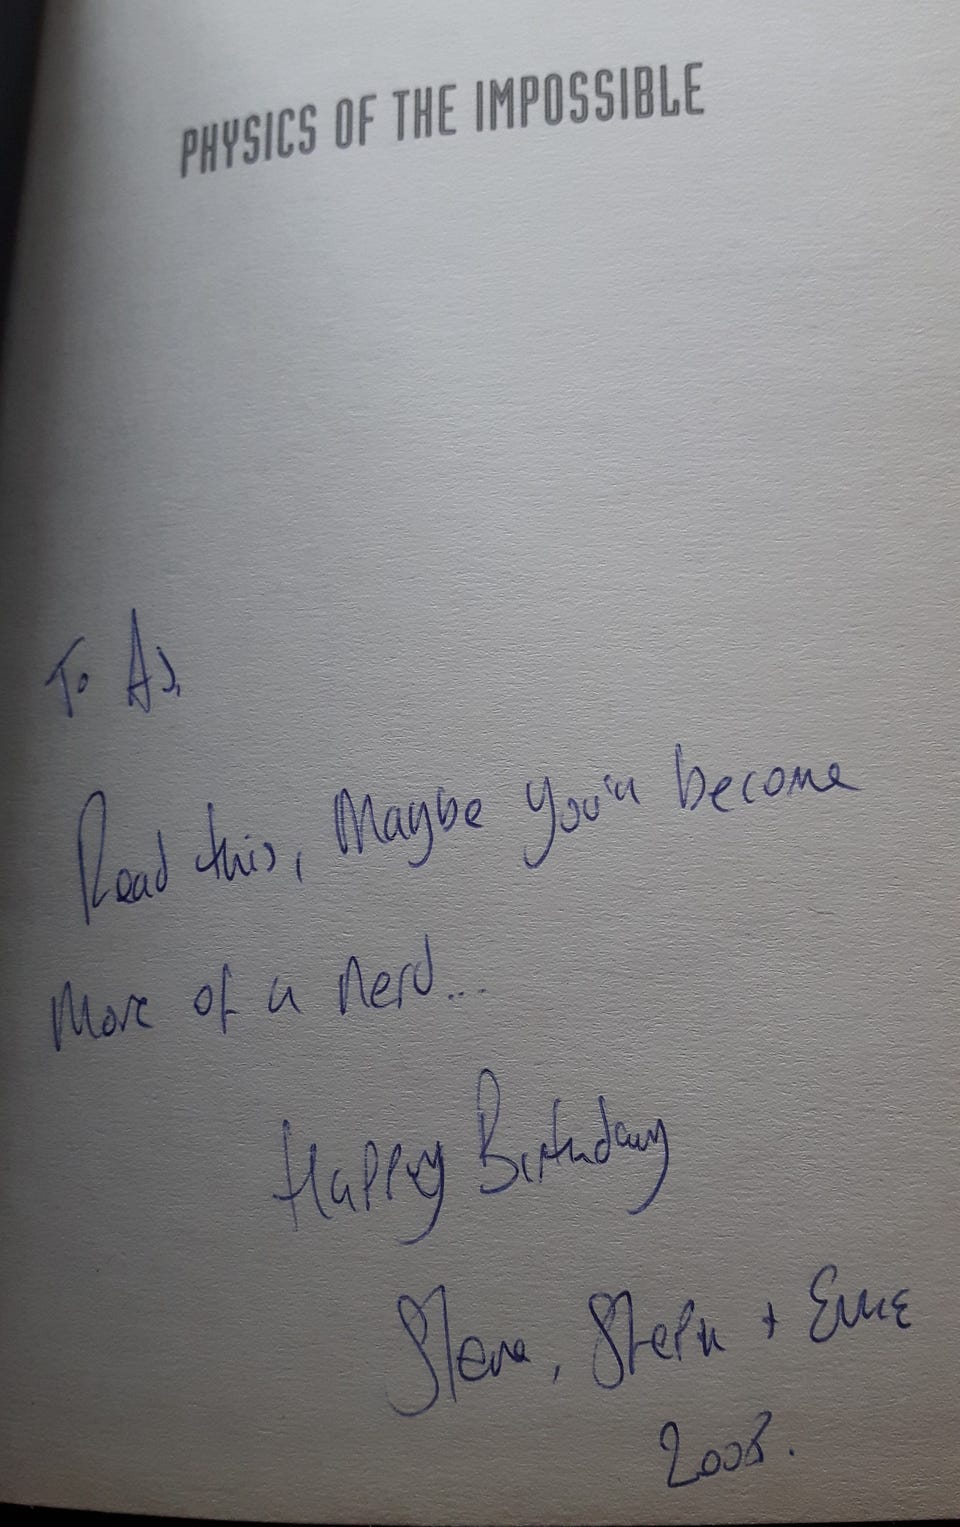 PHYSICS OF THE IMPOSSIBLE
To As,
Read this, Maybe you'll become
More of a nerd...
Happy Birthday
Steve, Steph +
2008.